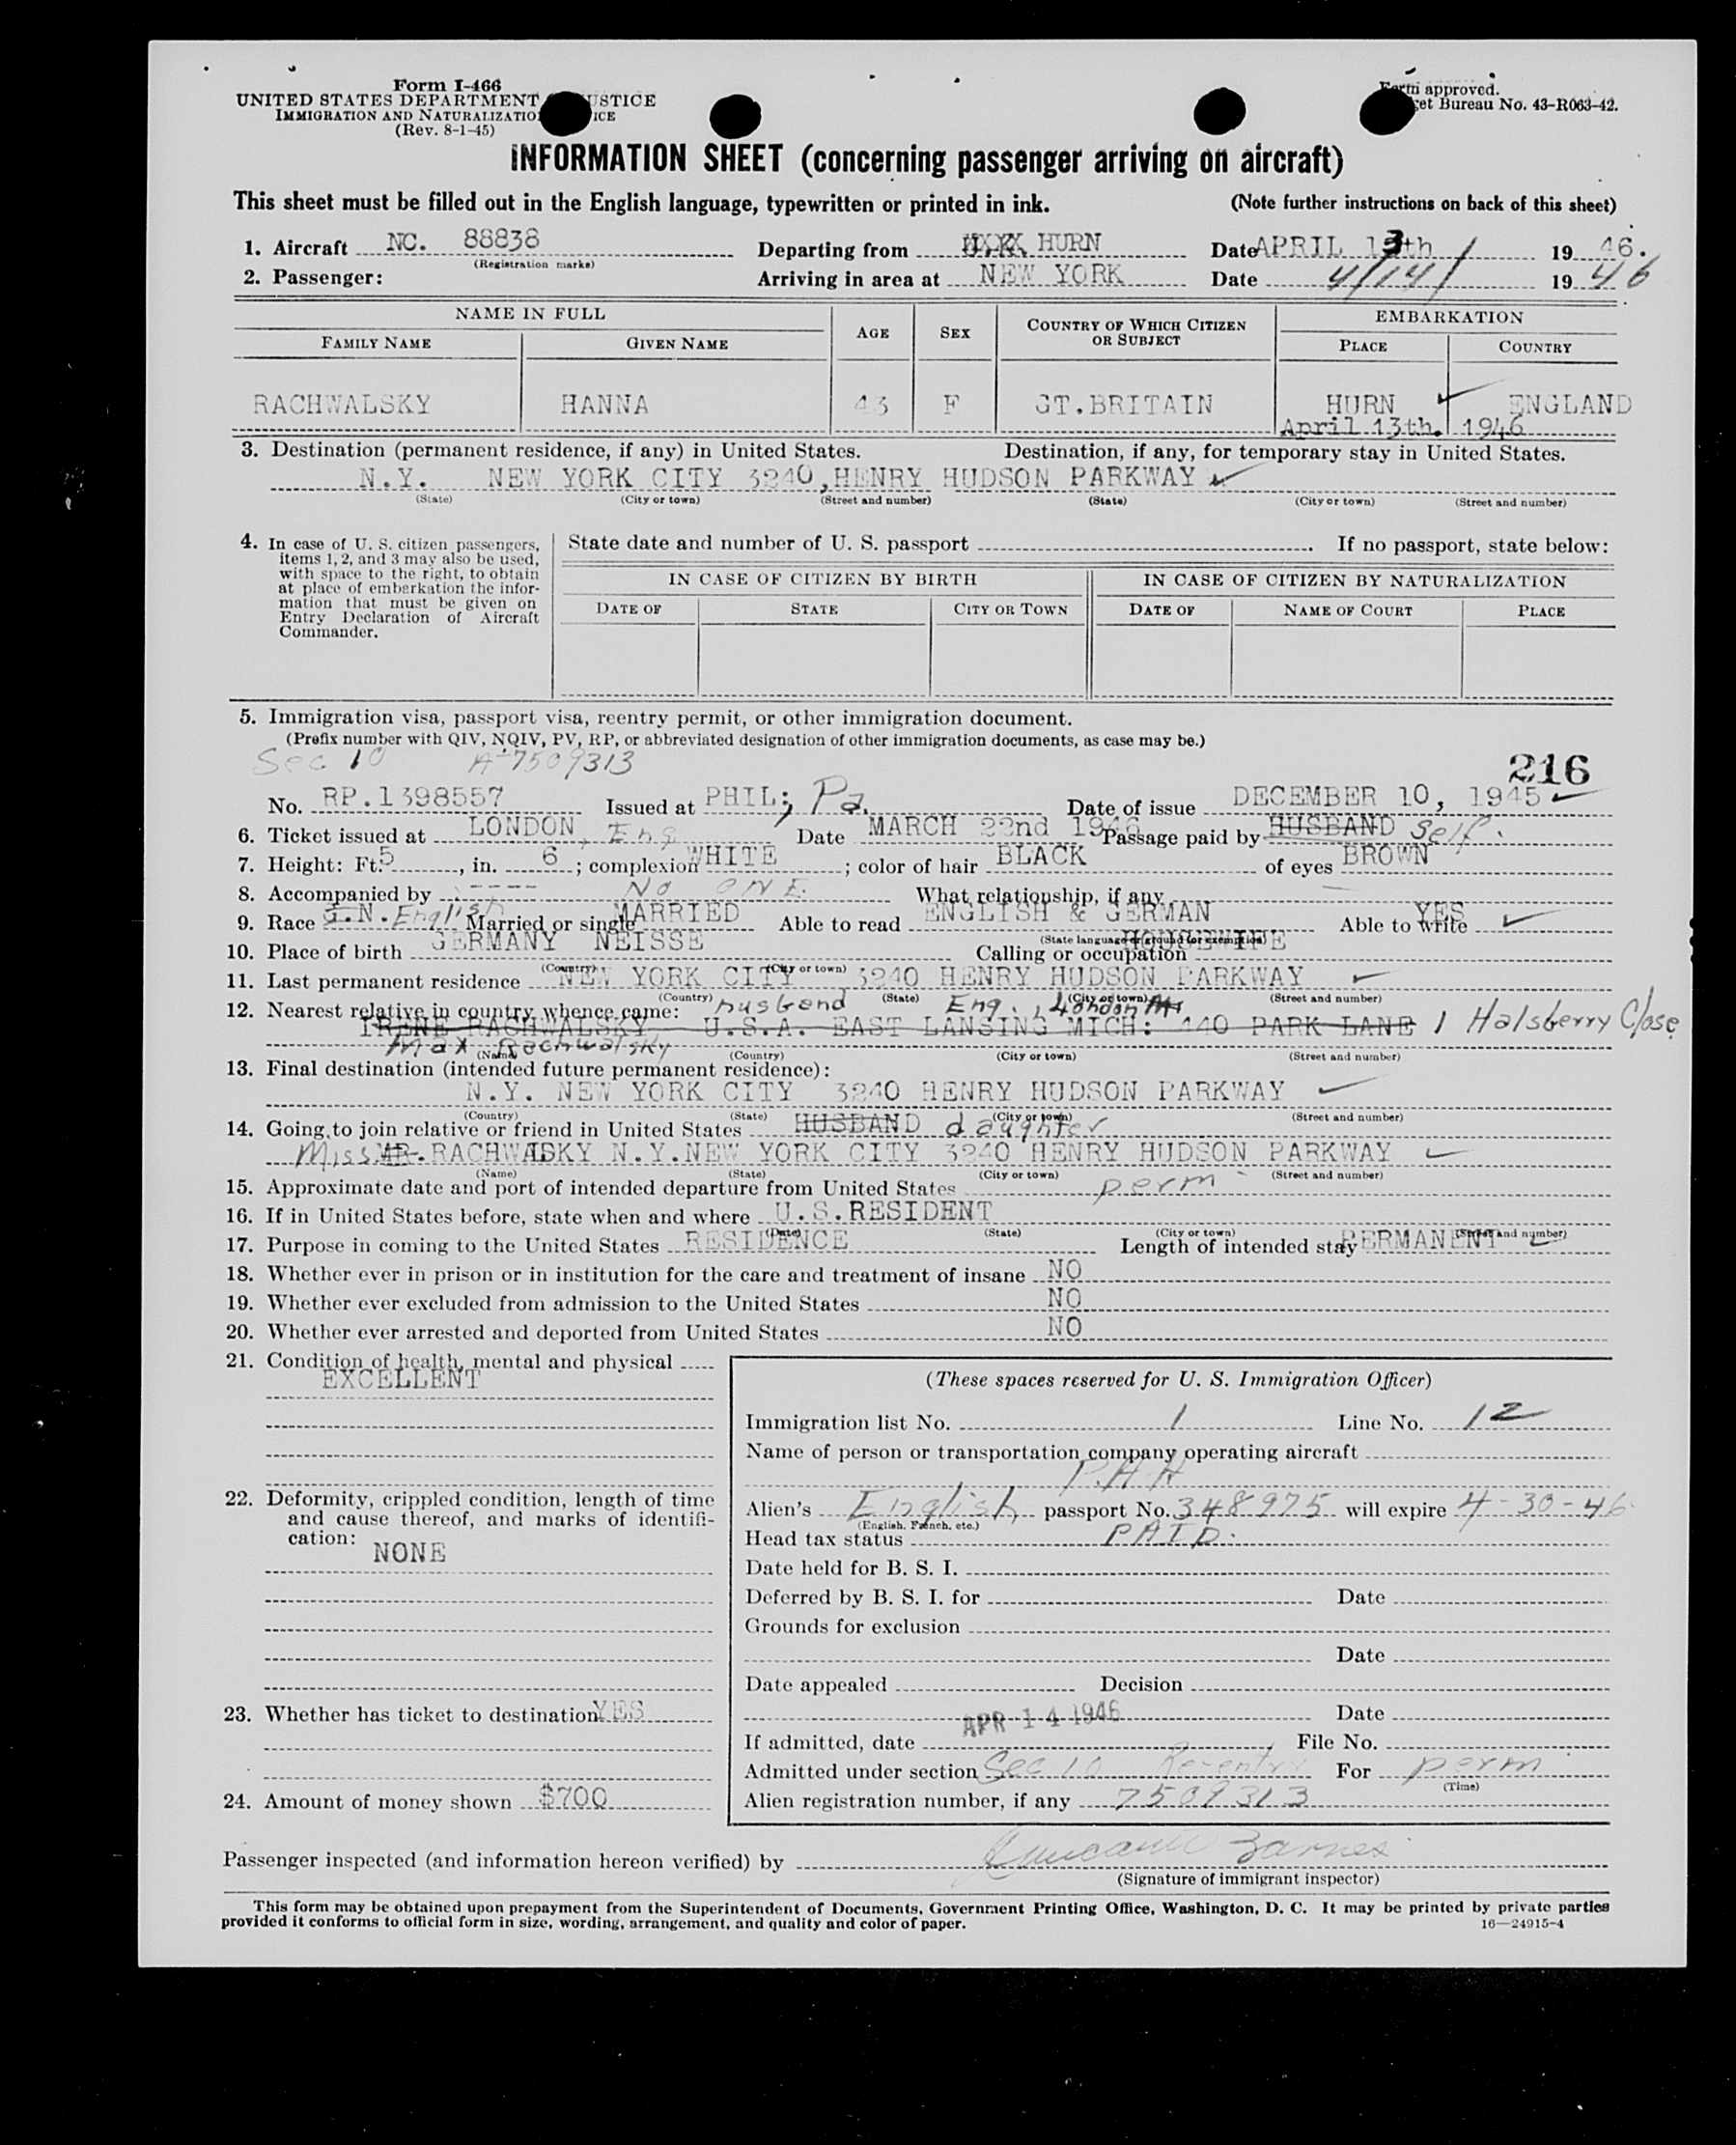 Form I-466
UNITED STATES DEPARTMENT USTICE
IMMIGRATION AND NATURALIZATIO ICE
(Rev. 8-1-45)
Form approved.
et Bureau No. 43-R063-42.
INFORMATION SHEET (concerning passenger arriving on aircraft)
This sheet must be filled out in the English language, typewritten or printed in ink. (Note further instructions on back of this sheet)
1. Aircraft NC. 88838 Departing from HURN Date APRIL 13th 19 46.
(Registration marks)
2. Passenger: Arriving in area at NEW YORK Date 4/14/ 19 46
NAME IN FULL AGE SEX COUNTRY OF WHICH CITIZEN OR SUBJECT EMBARKATION
FAMILY NAME GIVEN NAME PLACE COUNTRY
RACHWALSKY HANNA 43 F GT.BRITAIN HURN ENGLAND
April 13th. 1946
3. Destination (permanent residence, if any) in United States. Destination, if any, for temporary stay in United States.
N.Y. NEW YORK CITY 3240,HENRY HUDSON PARKWAY
(State) (City or town) (Street and number) (State) (City or town) (Street and number)
4. In case of U. S. citizen passengers, items 1, 2, and 3 may also be used, with space to the right, to obtain at place of embarkation the information that must be given on Entry Declaration of Aircraft Commander.
State date and number of U. S. passport . If no passport, state below:
IN CASE OF CITIZEN BY BIRTH IN CASE OF CITIZEN BY NATURALIZATION
DATE OF STATE CITY OR TOWN DATE OF NAME OF COURT PLACE
5. Immigration visa, passport visa, reentry permit, or other immigration document.
(Prefix number with QIV, NQIV, PV, RP, or abbreviated designation of other immigration documents, as case may be.)
Sec 10 A-7509313 216
No. RP.1398557 Issued at PHIL; Pa. Date of issue DECEMBER 10, 1945
6. Ticket issued at LONDON, Eng Date MARCH 22nd 1946 Passage paid by HUSBAND Self.
7. Height: Ft. 5, in. 6; complexion WHITE; color of hair BLACK of eyes BROWN
8. Accompanied by ---- No ONE. What relationship, if any
9. Race English Married or single MARRIED Able to read ENGLISH & GERMAN Able to write YES
(State language or ground for exemption)
10. Place of birth GERMANY NEISSE Calling or occupation HOUSEWIFE
(Country) (City or town)
11. Last permanent residence NEW YORK CITY 3240 HENRY HUDSON PARKWAY
(Country) (State) (City or town) (Street and number)
12. Nearest relative in country whence came: husband Eng., London
IRENE RACHWALSKY U.S.A. EAST LANSING MICH: 440 PARK LANE 1 Halsberry Close
Max Rachwalsky
(Name) (Country) (City or town) (Street and number)
13. Final destination (intended future permanent residence):
N.Y. NEW YORK CITY 3240 HENRY HUDSON PARKWAY
(Country) (State) (City or town) (Street and number)
14. Going to join relative or friend in United States HUSBAND daughter
Miss MR. RACHWALSKY N.Y.NEW YORK CITY 3240 HENRY HUDSON PARKWAY
(Name) (State) (City or town) (Street and number)
15. Approximate date and port of intended departure from United States perm
16. If in United States before, state when and where U.S.RESIDENT
(Date) (State) (City or town) (Street and number)
17. Purpose in coming to the United States RESIDENCE Length of intended stay PERMANENT
18. Whether ever in prison or in institution for the care and treatment of insane NO
19. Whether ever excluded from admission to the United States NO
20. Whether ever arrested and deported from United States NO
21. Condition of health, mental and physical
EXCELLENT
22. Deformity, crippled condition, length of time and cause thereof, and marks of identification:
NONE
23. Whether has ticket to destination YES
24. Amount of money shown $700
(These spaces reserved for U. S. Immigration Officer)
Immigration list No. 1 Line No. 12
Name of person or transportation company operating aircraft
P.A.A
Alien's English passport No. 348975 will expire 4-30-46
(English, French, etc.)
Head tax status PAID.
Date held for B. S. I.
Deferred by B. S. I. for Date
Grounds for exclusion
Date
Date appealed Decision
Date
If admitted, date APR 14 1946 File No.
Admitted under section Sec 10 Reentry For perm
(Time)
Alien registration number, if any 7509313
Passenger inspected (and information hereon verified) by Barnes
(Signature of immigrant inspector)
This form may be obtained upon prepayment from the Superintendent of Documents, Government Printing Office, Washington, D. C. It may be printed by private parties
provided it conforms to official form in size, wording, arrangement, and quality and color of paper. 16—24915-4